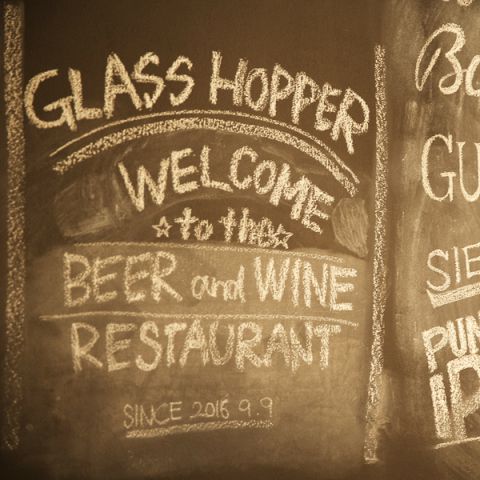 GLASS HOPPER
WELCOME
☆to the☆
BEER and WINE
RESTAURANT
SINCE 2016 9.9